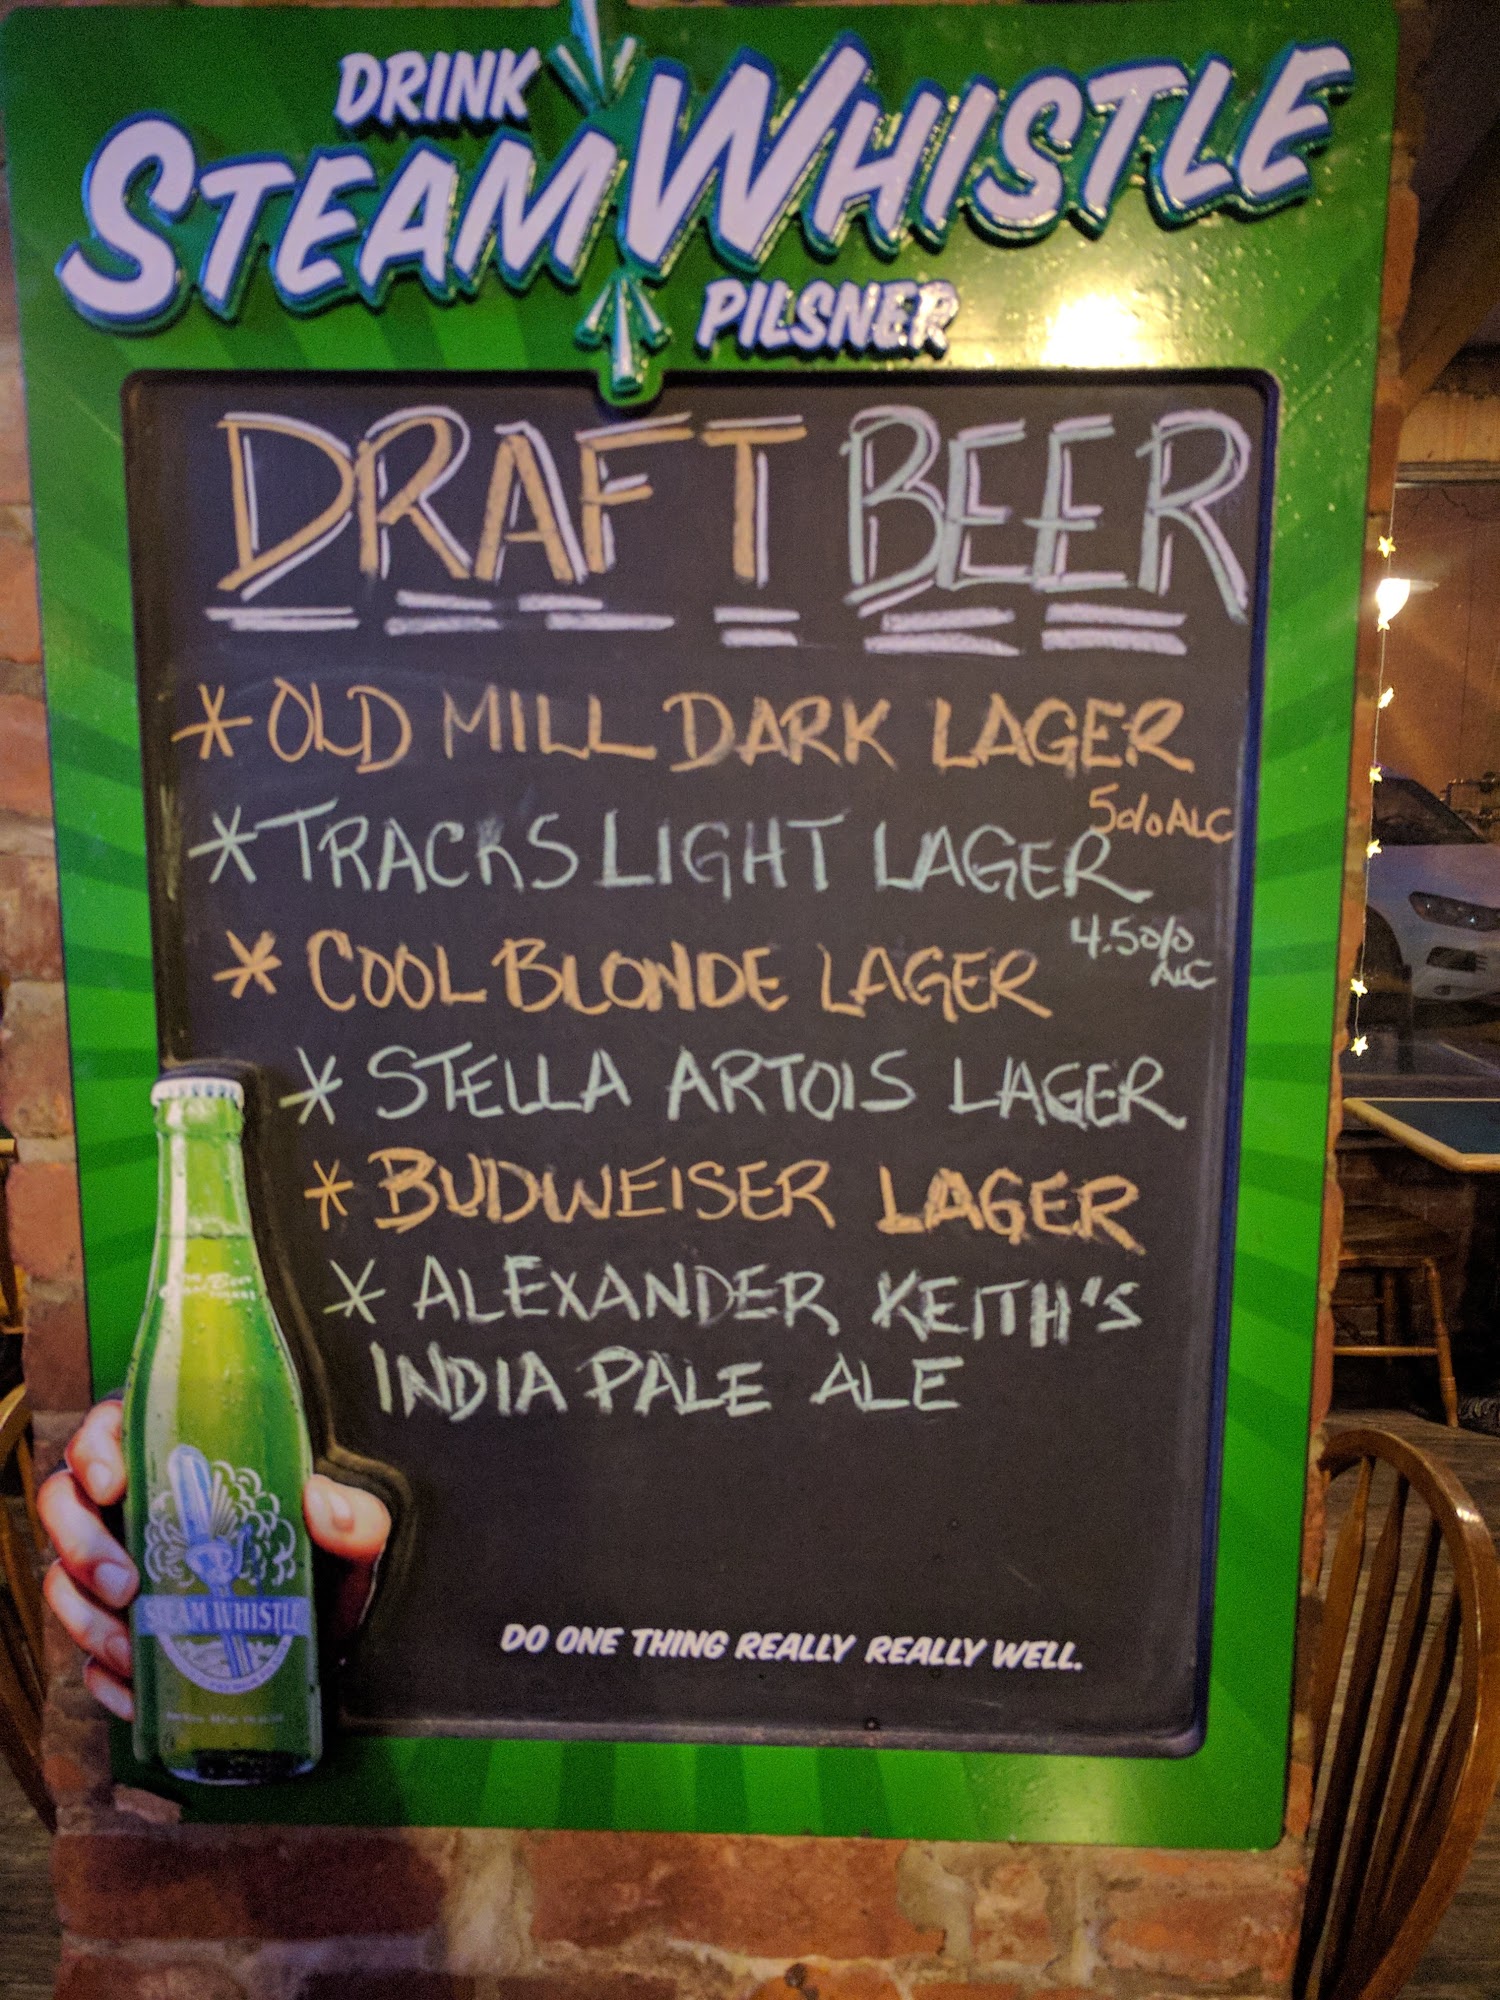 DRINK
STEAM WHISTLE
PILSNER
DRAFT BEER
* OLD MILL DARK LAGER
5% ALC
* TRACKS LIGHT LAGER
4.5%
ALC
* COOL BLONDE LAGER
* STELLA ARTOIS LAGER
* BUDWEISER LAGER
* ALEXANDER KEITH'S
INDIA PALE ALE
STEAM WHISTLE
DO ONE THING REALLY REALLY WELL.